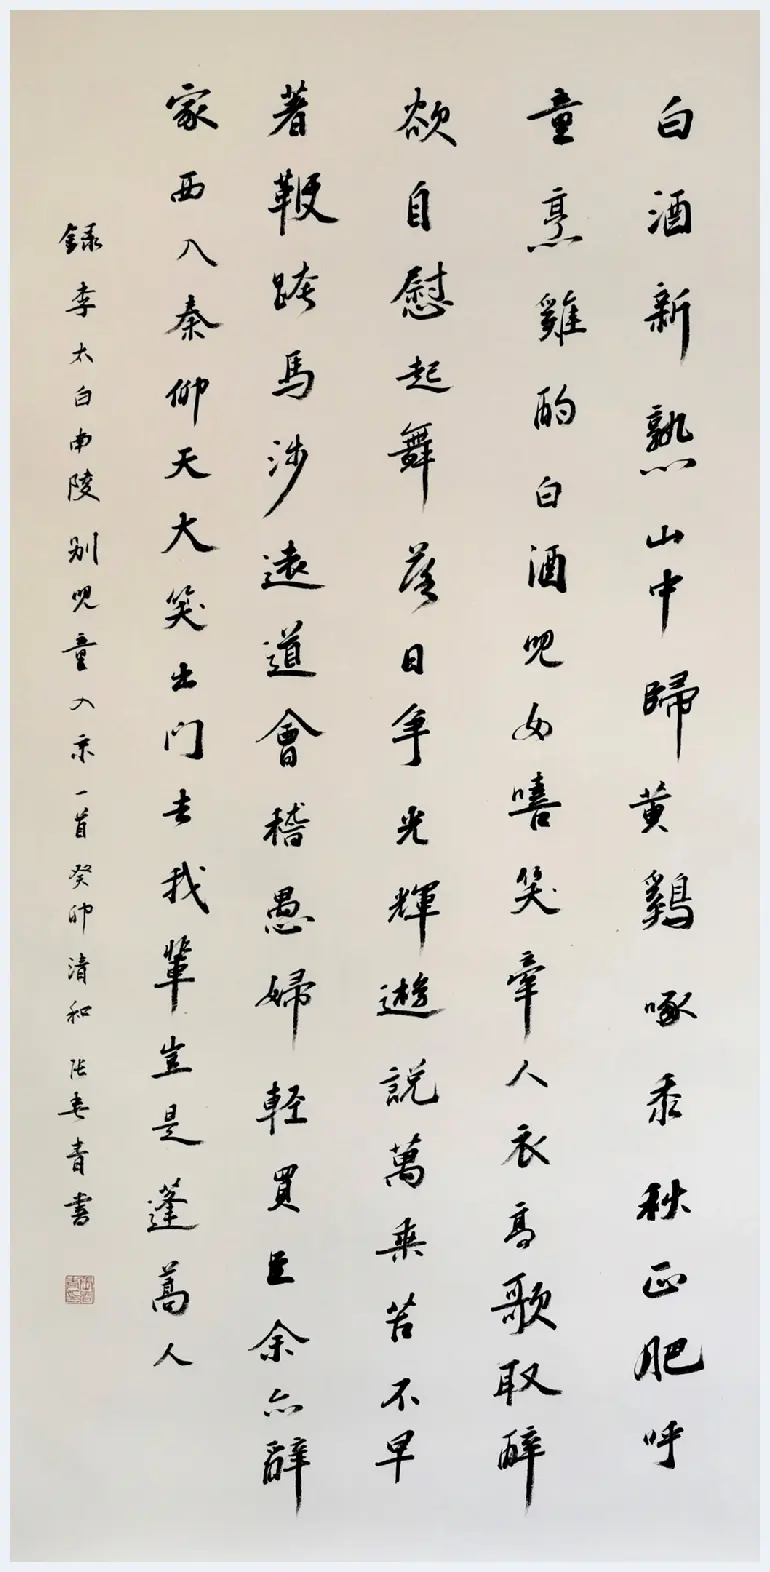 白酒新熟山中歸黄鷄啄黍秋正肥呼
童烹雞酌白酒兒女嘻笑牽人衣高歌取醉
欲自慰起舞落日争光輝遊説萬乘苦不早
著鞭跨馬涉遠道會稽愚婦輕買臣余亦辭
家西入秦仰天大笑出門去我輩豈是蓬蒿人
録李太白南陵别兒童入京一首癸卯清和張春青書